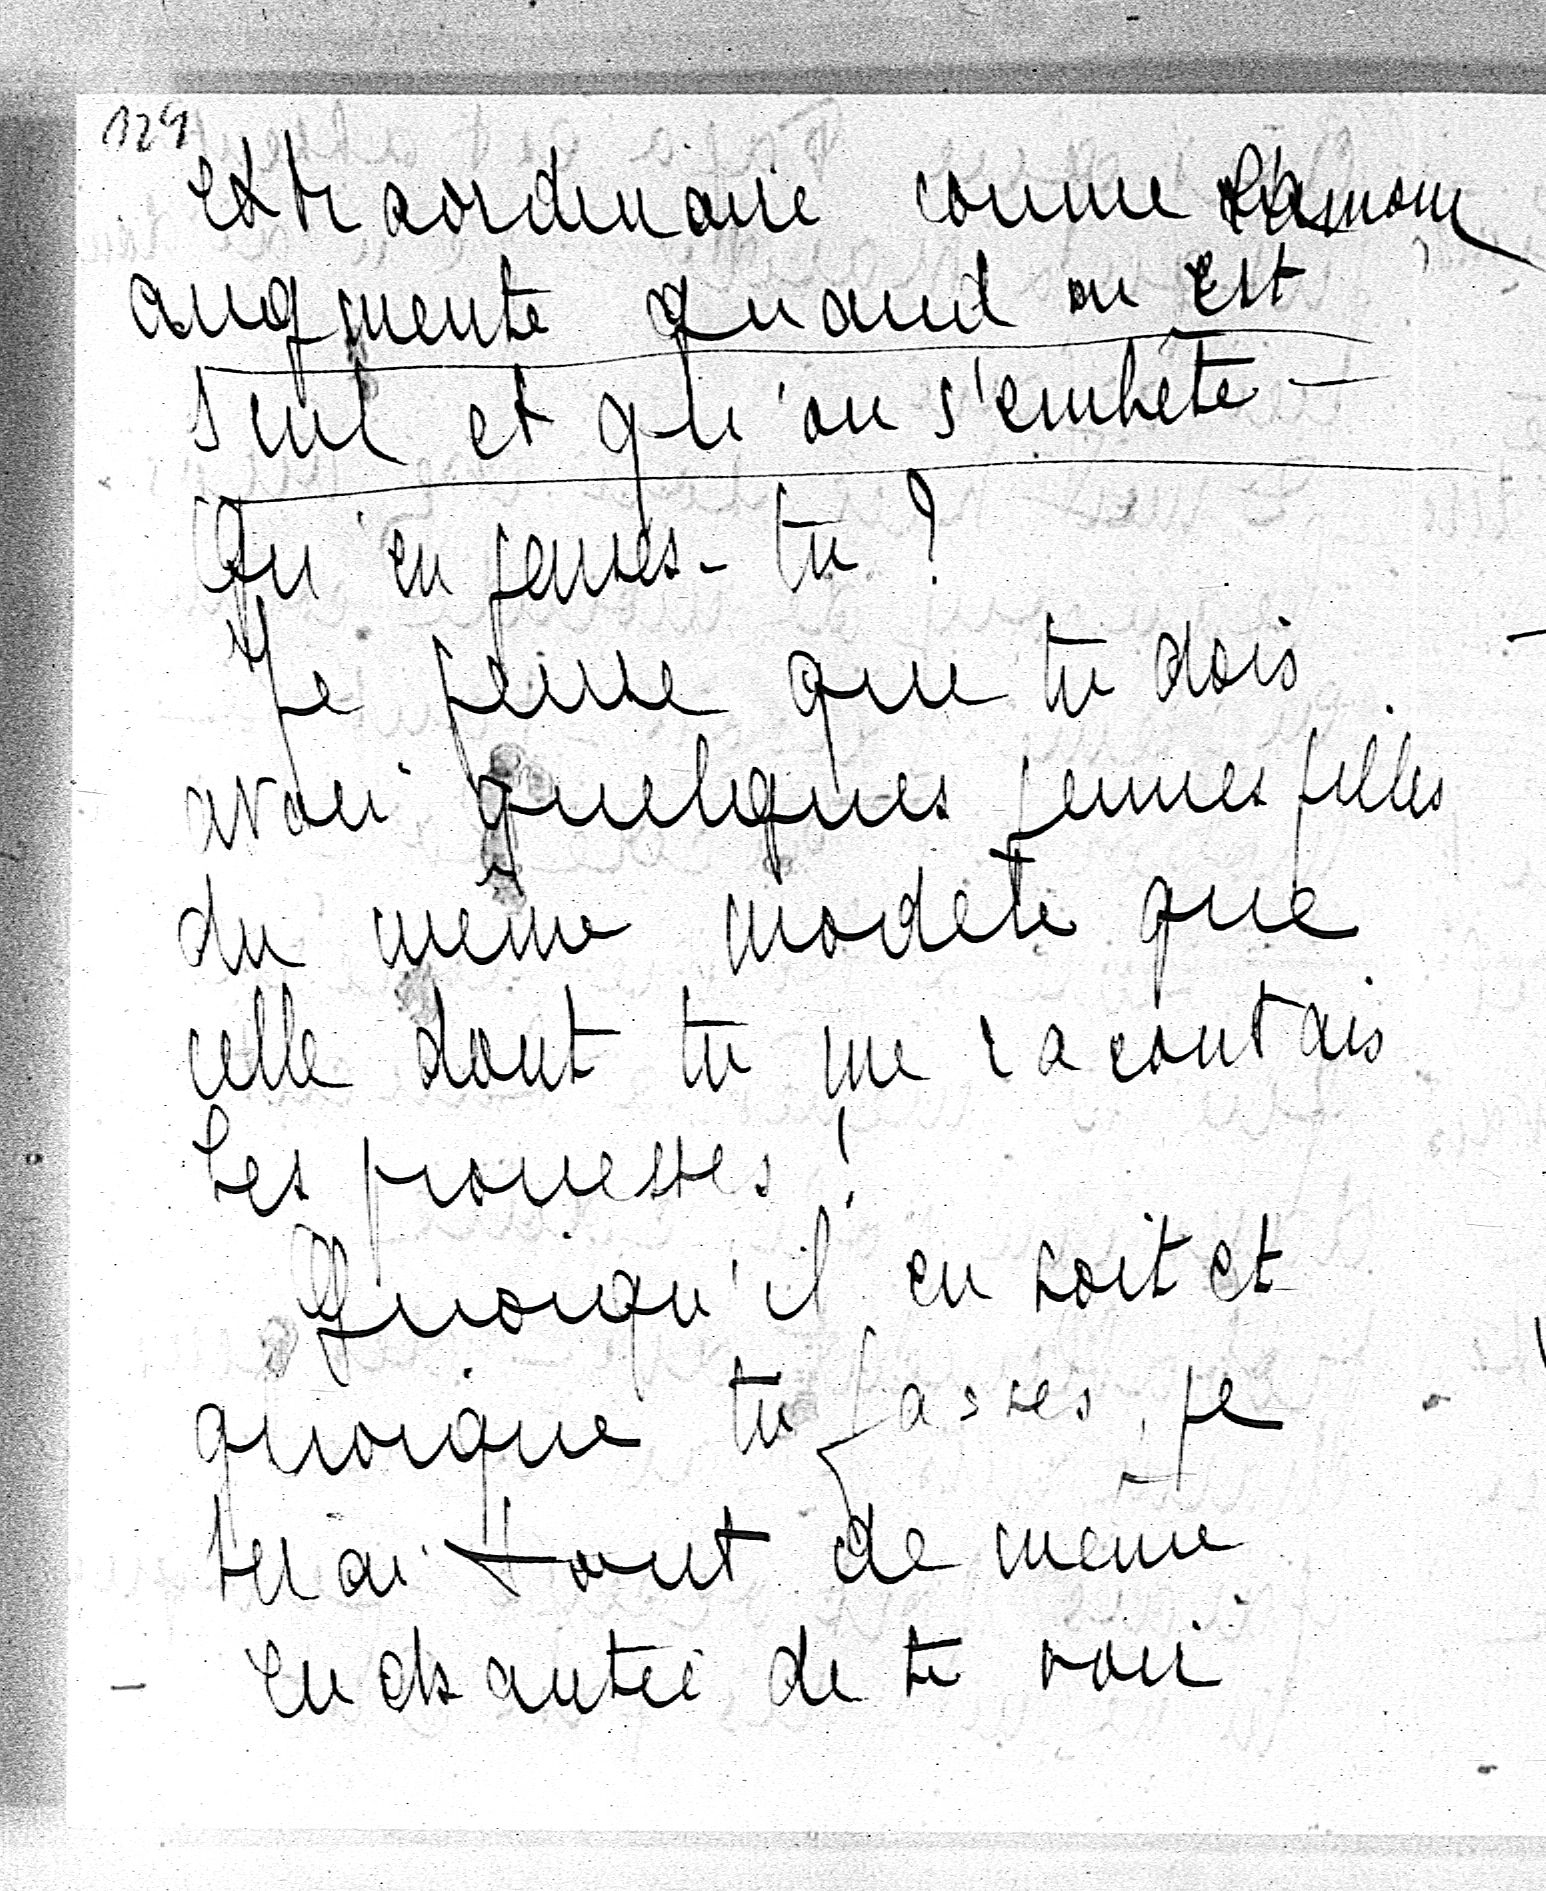 129
extraordinaire comme l'amour
augmente quand on est
seul et qu'on s'embête —
Qu'en penses-tu ?
Je pense que tu dois
avoir quelques jeunes filles
du même modèle que
celle dont tu me racontais
les prouesses !
Quoiqu'il en soit et
quoique tu fasses, je
serai tout de même
enchantée de te voir